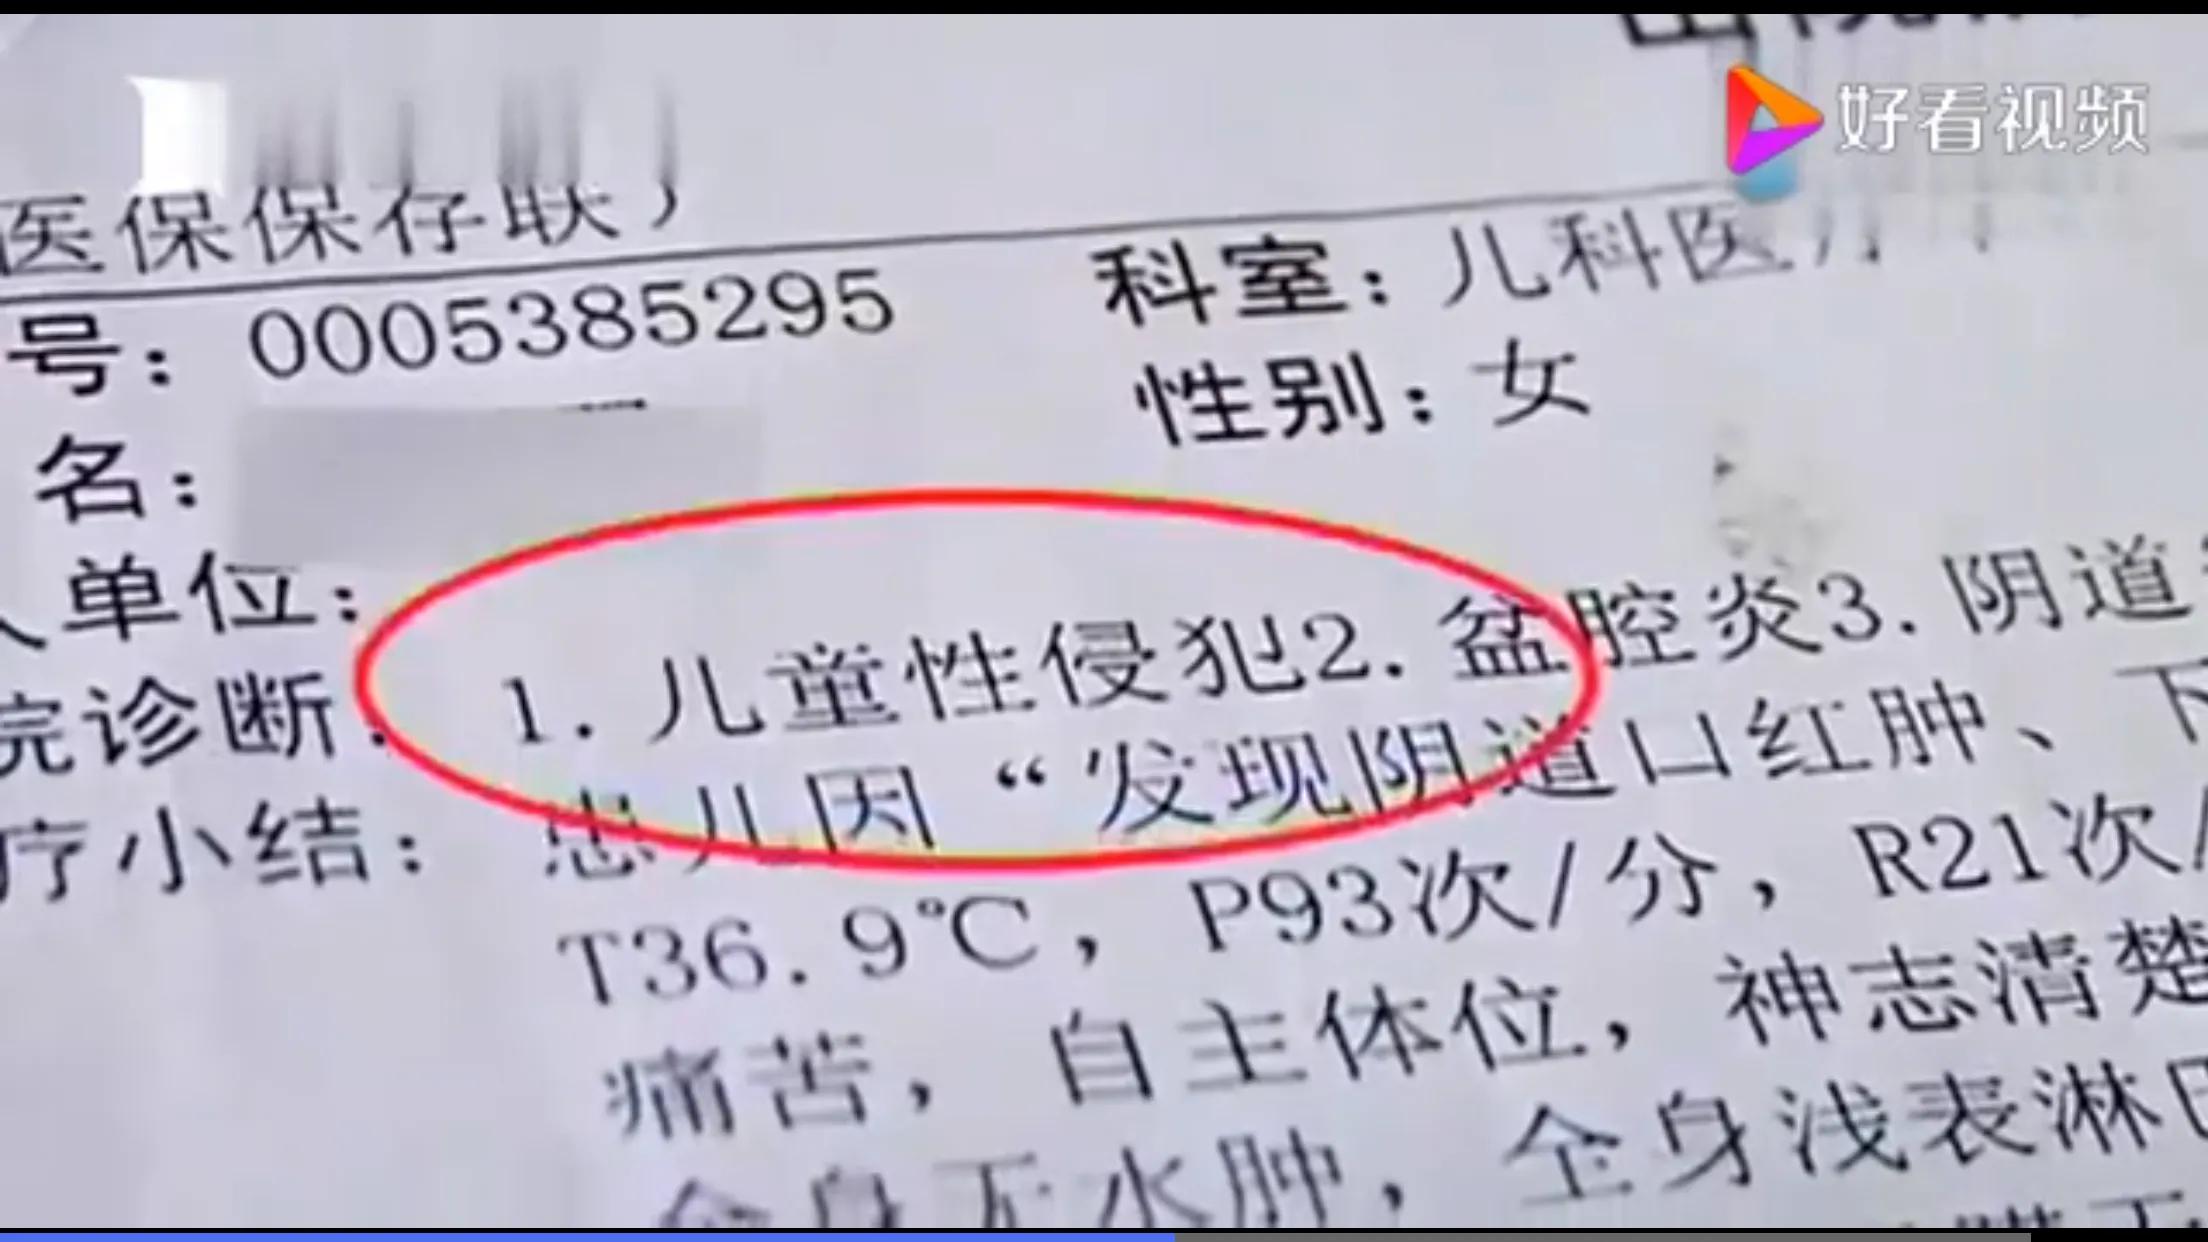 好看视频
医保保存联）
号：0005385295 科室：儿科医疗
名： 性别：女
人单位：
院诊断：1. 儿童性侵犯2. 盆腔炎3. 阴道
疗小结：患儿因“发现阴道口红肿、下
T36.9℃，P93次/分，R21次/
痛苦，自主体位，神志清楚
全身无水肿，全身浅表淋巴